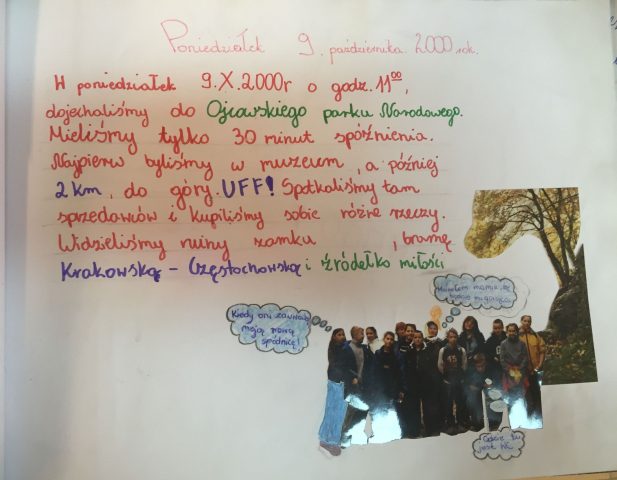 Poniedziałek 9. października. 2000 rok.
H poniedziałek 9.X.2000r o godz. 11⁰⁰,
dojechaliśmy do Ojcowskiego parku Narodowego.
Mieliśmy tylko 30 minut spóźnienia.
Najpierw byliśmy w muzeum, a później
2 km, do góry. UFF! Spotkaliśmy tam
sprzedawców i kupiliśmy sobie różne rzeczy.
Widzieliśmy ruiny zamku, bramę
Krakowską - Częstochowską i źródełko miłości
Kiedy oni zauważą
moją nową
spódnicę!
mamie, że
będzie
Gdzie tu
jest WC